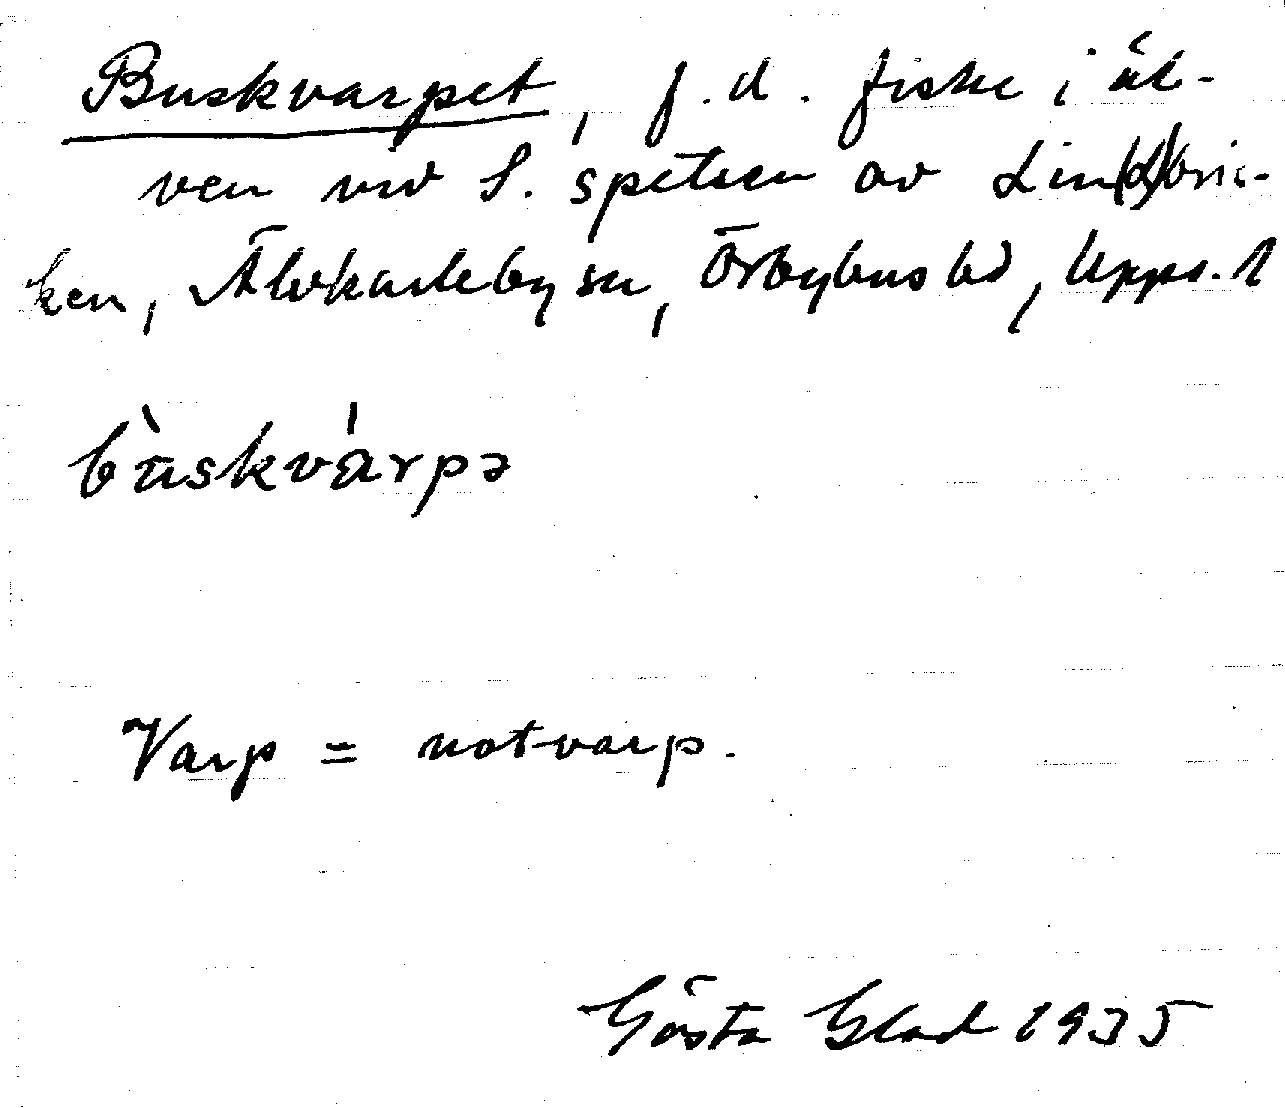 Buskvarpet, f.d. fiske i äl-
ven vid S. spetsen av Lin(d)bric-
ken, Älvkarleby sn, Örbyhus hd, Upps. l
bùskvárpə
Varp = notvarp.
Gösta Glad 1935